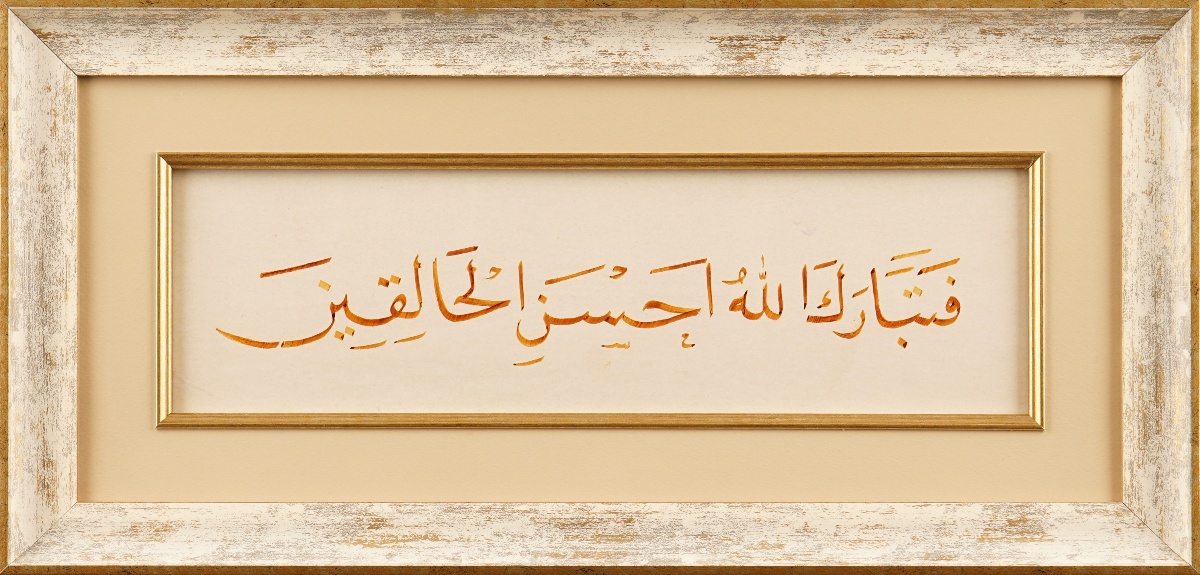 فَتَبَارَكَ اللّٰهُ اَحْسَنُ الْخَالِقِينَ